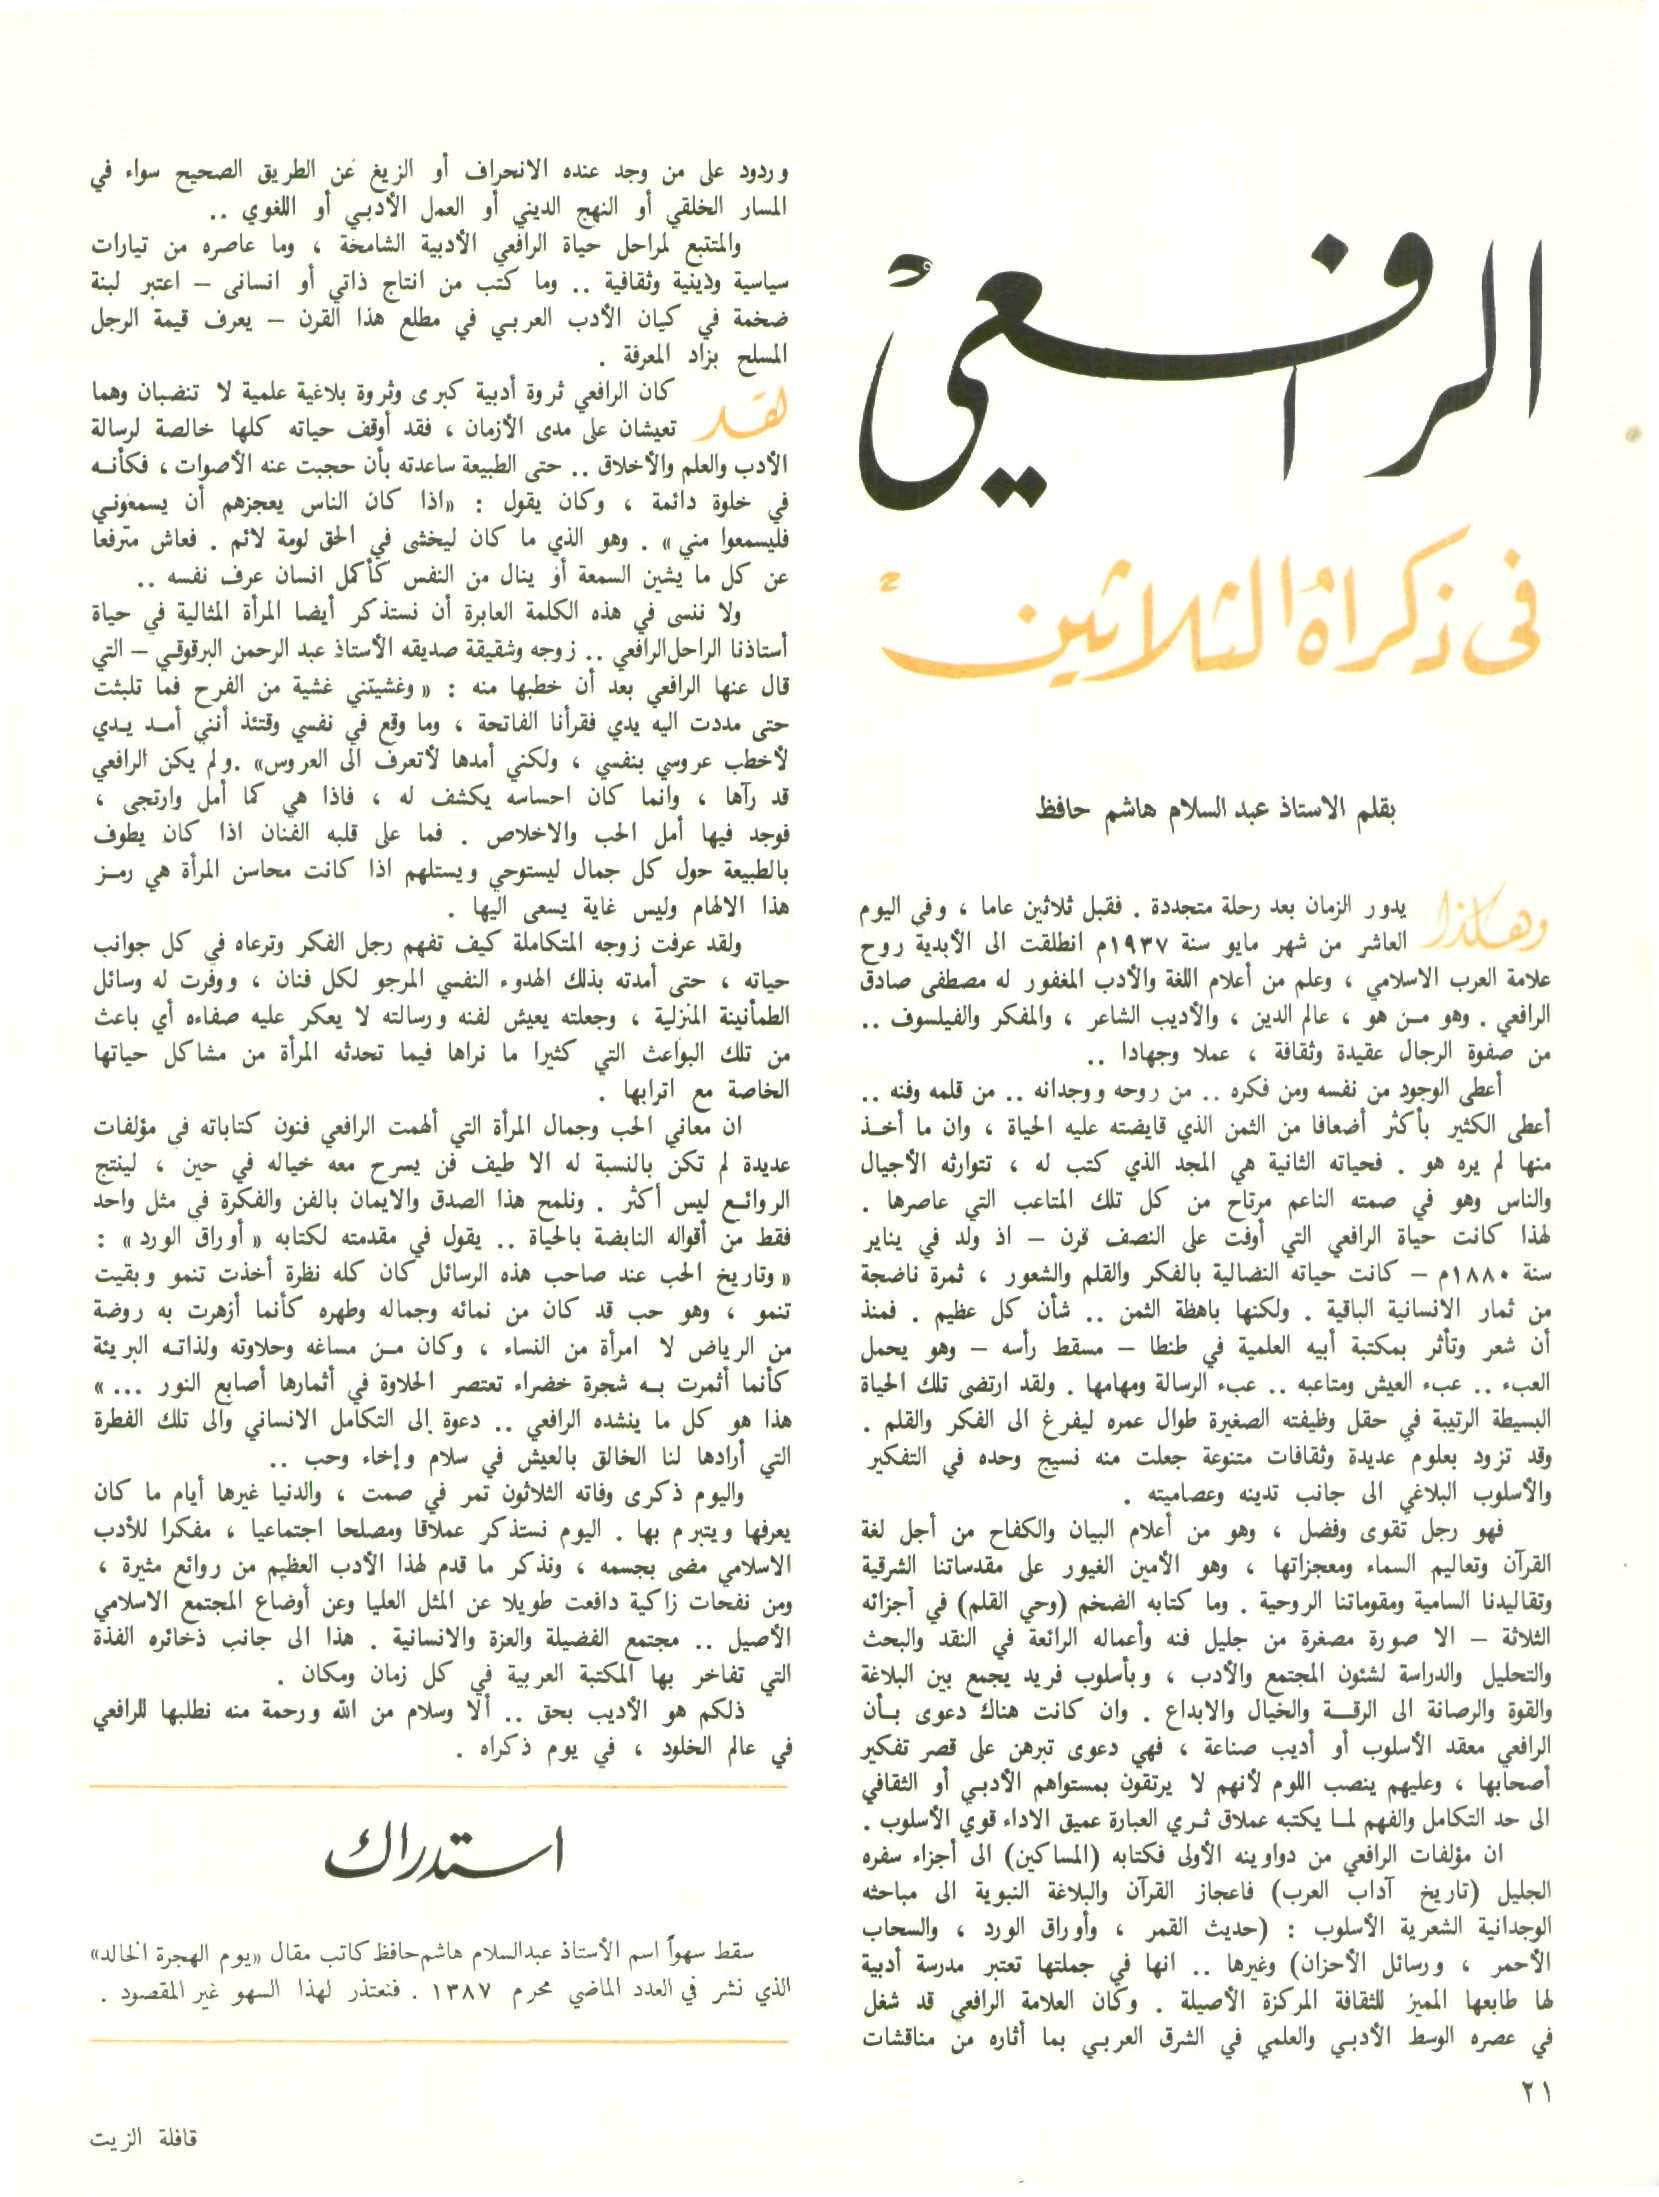 الرافعي
في ذكراه الثلاثين
بقلم الاستاذ عبد السلام هاشم حافظ
وهكذا يدور الزمان بعد رحلة متجددة . فقبل ثلاثين عاما ، وفي اليوم
العاشر من شهر مايو سنة ١٩٣٧م انطلقت الى الأبدية روح
علامة العرب الاسلامي ، وعلم من أعلام اللغة والأدب المغفور له مصطفى صادق
الرافعي . وهو مـن هو ، عالم الدين ، والأديب الشاعر ، والمفكر والفيلسوف ..
من صفوة الرجال عقيدة وثقافة ، عملا وجهادا ..
أعطى الوجود من نفسه ومن فكره .. من روحه ووجدانه .. من قلمه وفنه ..
أعطى الكثير بأكثر أضعافا من الثمن الذي قايضته عليه الحياة ، وان ما أخـذ
منها لم يره هو . فحياته الثانية هي المجد الذي كتب له ، تتوارثه الأجيال
والناس وهو في صمته الناعم مرتاح من كل تلك المتاعب التي عاصرها .
لهذا كانت حياة الرافعي التي أوفت على النصف قرن – اذ ولد في يناير
سنة ١٨٨٠م – كانت حياته النضالية بالفكر والقلم والشعور ، ثمرة ناضجة
من ثمار الانسانية الباقية . ولكنها باهظة الثمن .. شأن كل عظيم . فمنذ
أن شعر وتأثر بمكتبة أبيه العلمية في طنطا – مسقط رأسه – وهو يحمل
العبء .. عبء العيش ومتاعبه .. عبء الرسالة ومهامها . ولقد ارتضى تلك الحياة
البسيطة الرتيبة في حقل وظيفته الصغيرة طوال عمره ليفرغ الى الفكر والقلم .
وقد تزود بعلوم عديدة وثقافات متنوعة جعلت منه نسيج وحده في التفكير
والأسلوب البلاغي الى جانب تدينه وعصاميته .
فهو رجل تقوى وفضل ، وهو من أعلام البيان والكفاح من أجل لغة
القرآن وتعاليم السماء ومعجزاتها ، وهو الأمين الغيور على مقدساتنا الشرقية
وتقاليدنا السامية ومقوماتنا الروحية . وما كتابه الضخم (وحي القلم) في أجزائه
الثلاثة – الا صورة مصغرة من جليل فنه وأعماله الرائعة في النقد والبحث
والتحليل والدراسة لشئون المجتمع والأدب ، وبأسلوب فريد يجمع بين البلاغة
والقوة والرصانة الى الرقـة والخيال والابداع . وان كانت هناك دعوى بـأن
الرافعي معقد الأسلوب أو أديب صناعة ، فهي دعوى تبرهن على قصر تفكير
أصحابها ، وعليهم ينصب اللوم لأنهم لا يرتقون بمستواهم الأدبي أو الثقافي
الى حد التكامل والفهم لمـا يكتبه عملاق ثـري العبارة عميق الاداء قوي الأسلوب .
ان مؤلفات الرافعي من دواوينه الأولى فكتابه (المساكين) الى أجزاء سفره
الجليل (تاريخ آداب العرب) فاعجاز القرآن والبلاغة النبوية الى مباحثه
الوجدانية الشعرية الأسلوب : (حديث القمر ، وأوراق الورد ، والسحاب
الأحمر ، ورسائل الأحزان) وغيرها .. انها في جملتها تعتبر مدرسة أدبية
لها طابعها المميز للثقافة المركزة الأصيلة . وكان العلامة الرافعي قد شغل
في عصره الوسط الأدبي والعلمي في الشرق العربي بما أثاره من مناقشات
وردود على من وجد عنده الانحراف أو الزيغ عن الطريق الصحيح سواء في
المسار الخلقي أو النهج الديني أو العمل الأدبي أو اللغوي ..
والمتتبع لمراحل حياة الرافعي الأدبية الشامخة ، وما عاصره من تيارات
سياسية ودينية وثقافية .. وما كتب من انتاج ذاتي أو انسانى – اعتبر لبنة
ضخمة في كيان الأدب العربي في مطلع هذا القرن – يعرف قيمة الرجل
المسلح بزاد المعرفة .
لقد كان الرافعي ثروة أدبية كبرى وثروة بلاغية علمية لا تنضبان وهما
تعيشان على مدى الأزمان ، فقد أوقف حياته كلها خالصة لرسالة
الأدب والعلم والأخلاق .. حتى الطبيعة ساعدته بأن حجبت عنه الأصوات ، فكأنـه
في خلوة دائمة ، وكان يقول : «اذا كان الناس يعجزهم أن يسمعوني
فليسمعوا مني» . وهو الذي ما كان ليخشى في الحق لومة لائم . فعاش مترفعا
عن كل ما يشين السمعة أو ينال من النفس كأكمل انسان عرف نفسه ..
ولا ننسى في هذه الكلمة العابرة أن نستذكر أيضا المرأة المثالية في حياة
أستاذنا الراحل الرافعي .. زوجه وشقيقة صديقه الأستاذ عبد الرحمن البرقوقي – التي
قال عنها الرافعي بعد أن خطبها منه : «وغشيتني غشية من الفرح فما تلبثت
حتى مددت اليه يدي فقرأنا الفاتحة ، وما وقع في نفسي وقتئذ أنني أمـد يـدي
لأخطب عروسي بنفسي ، ولكني أمدها لأتعرف الى العروس» . ولم يكن الرافعي
قد رآها ، وانما كان احساسه يكشف له ، فاذا هي كما أمل وارتجى ،
فوجد فيها أمل الحب والاخلاص . فما على قلبه الفنان اذا كان يطوف
بالطبيعة حول كل جمال ليستوحي ويستلهم اذا كانت محاسن المرأة هي رمـز
هذا الالهام وليس غاية يسعى اليها .
ولقد عرفت زوجه المتكاملة كيف تفهم رجل الفكر وترعاه في كل جوانب
حياته ، حتى أمدته بذلك الهدوء النفسي المرجو لكل فنان ، ووفرت له وسائل
الطمأنينة المنزلية ، وجعلته يعيش لفنه ورسالته لا يعكر عليه صفاءه أي باعث
من تلك البواعث التي كثيرا ما نراها فيما تحدثه المرأة من مشاكل حياتها
الخاصة مع اترابها .
ان معاني الحب وجمال المرأة التي ألهمت الرافعي فنون كتاباته في مؤلفات
عديدة لم تكن بالنسبة له الا طيف فن يسرح معه خياله في حين ، لينتج
الروائـع ليس أكثر . ونلمح هذا الصدق والايمان بالفن والفكرة في مثل واحد
فقط من أقواله النابضة بالحياة .. يقول في مقدمته لكتابه «أوراق الورد» :
«وتاريخ الحب عند صاحب هذه الرسائل كان كله نظرة أخذت تنمو وبقيت
تنمو ، وهو حب قد كان من نمائه وجماله وطهره كأنما أزهرت به روضة
من الرياض لا امرأة من النساء ، وكان مـن مساغه وحلاوته ولذاتـه البريئة
كأنما أثمرت بـه شجرة خضراء تعتصر الحلاوة في أثمارها أصابع النور ...»
هذا هو كل ما ينشده الرافعي .. دعوة إلى التكامل الانساني والى تلك الفطرة
التي أرادها لنا الخالق بالعيش في سلام وإخاء وحب ..
واليوم ذكرى وفاته الثلاثون تمر في صمت ، والدنيا غيرها أيام ما كان
يعرفها ويتبرم بها . اليوم نستذكر عملاقا ومصلحا اجتماعيا ، مفكرا للأدب
الاسلامي مضى بجسمه ، ونذكر ما قدم لهذا الأدب العظيم من روائع مثيرة ،
ومن نفحات زاكية دافعت طويلا عن المثل العليا وعن أوضاع المجتمع الاسلامي
الأصيل .. مجتمع الفضيلة والعزة والانسانية . هذا الى جانب ذخائره الفذة
التي تفاخر بها المكتبة العربية في كل زمان ومكان .
ذلكم هو الأديب بحق .. ألا وسلام من الله ورحمة منه نطلبها للرافعي
في عالم الخلود ، في يوم ذكراه .
استدراك
سقط سهواً اسم الأستاذ عبدالسلام هاشم حافظ كاتب مقال «يوم الهجرة الخالد»
الذي نشر في العدد الماضي محرم ١٣٨٧ . فنعتذر لهذا السهو غير المقصود .
٢١
قافلة الزيت